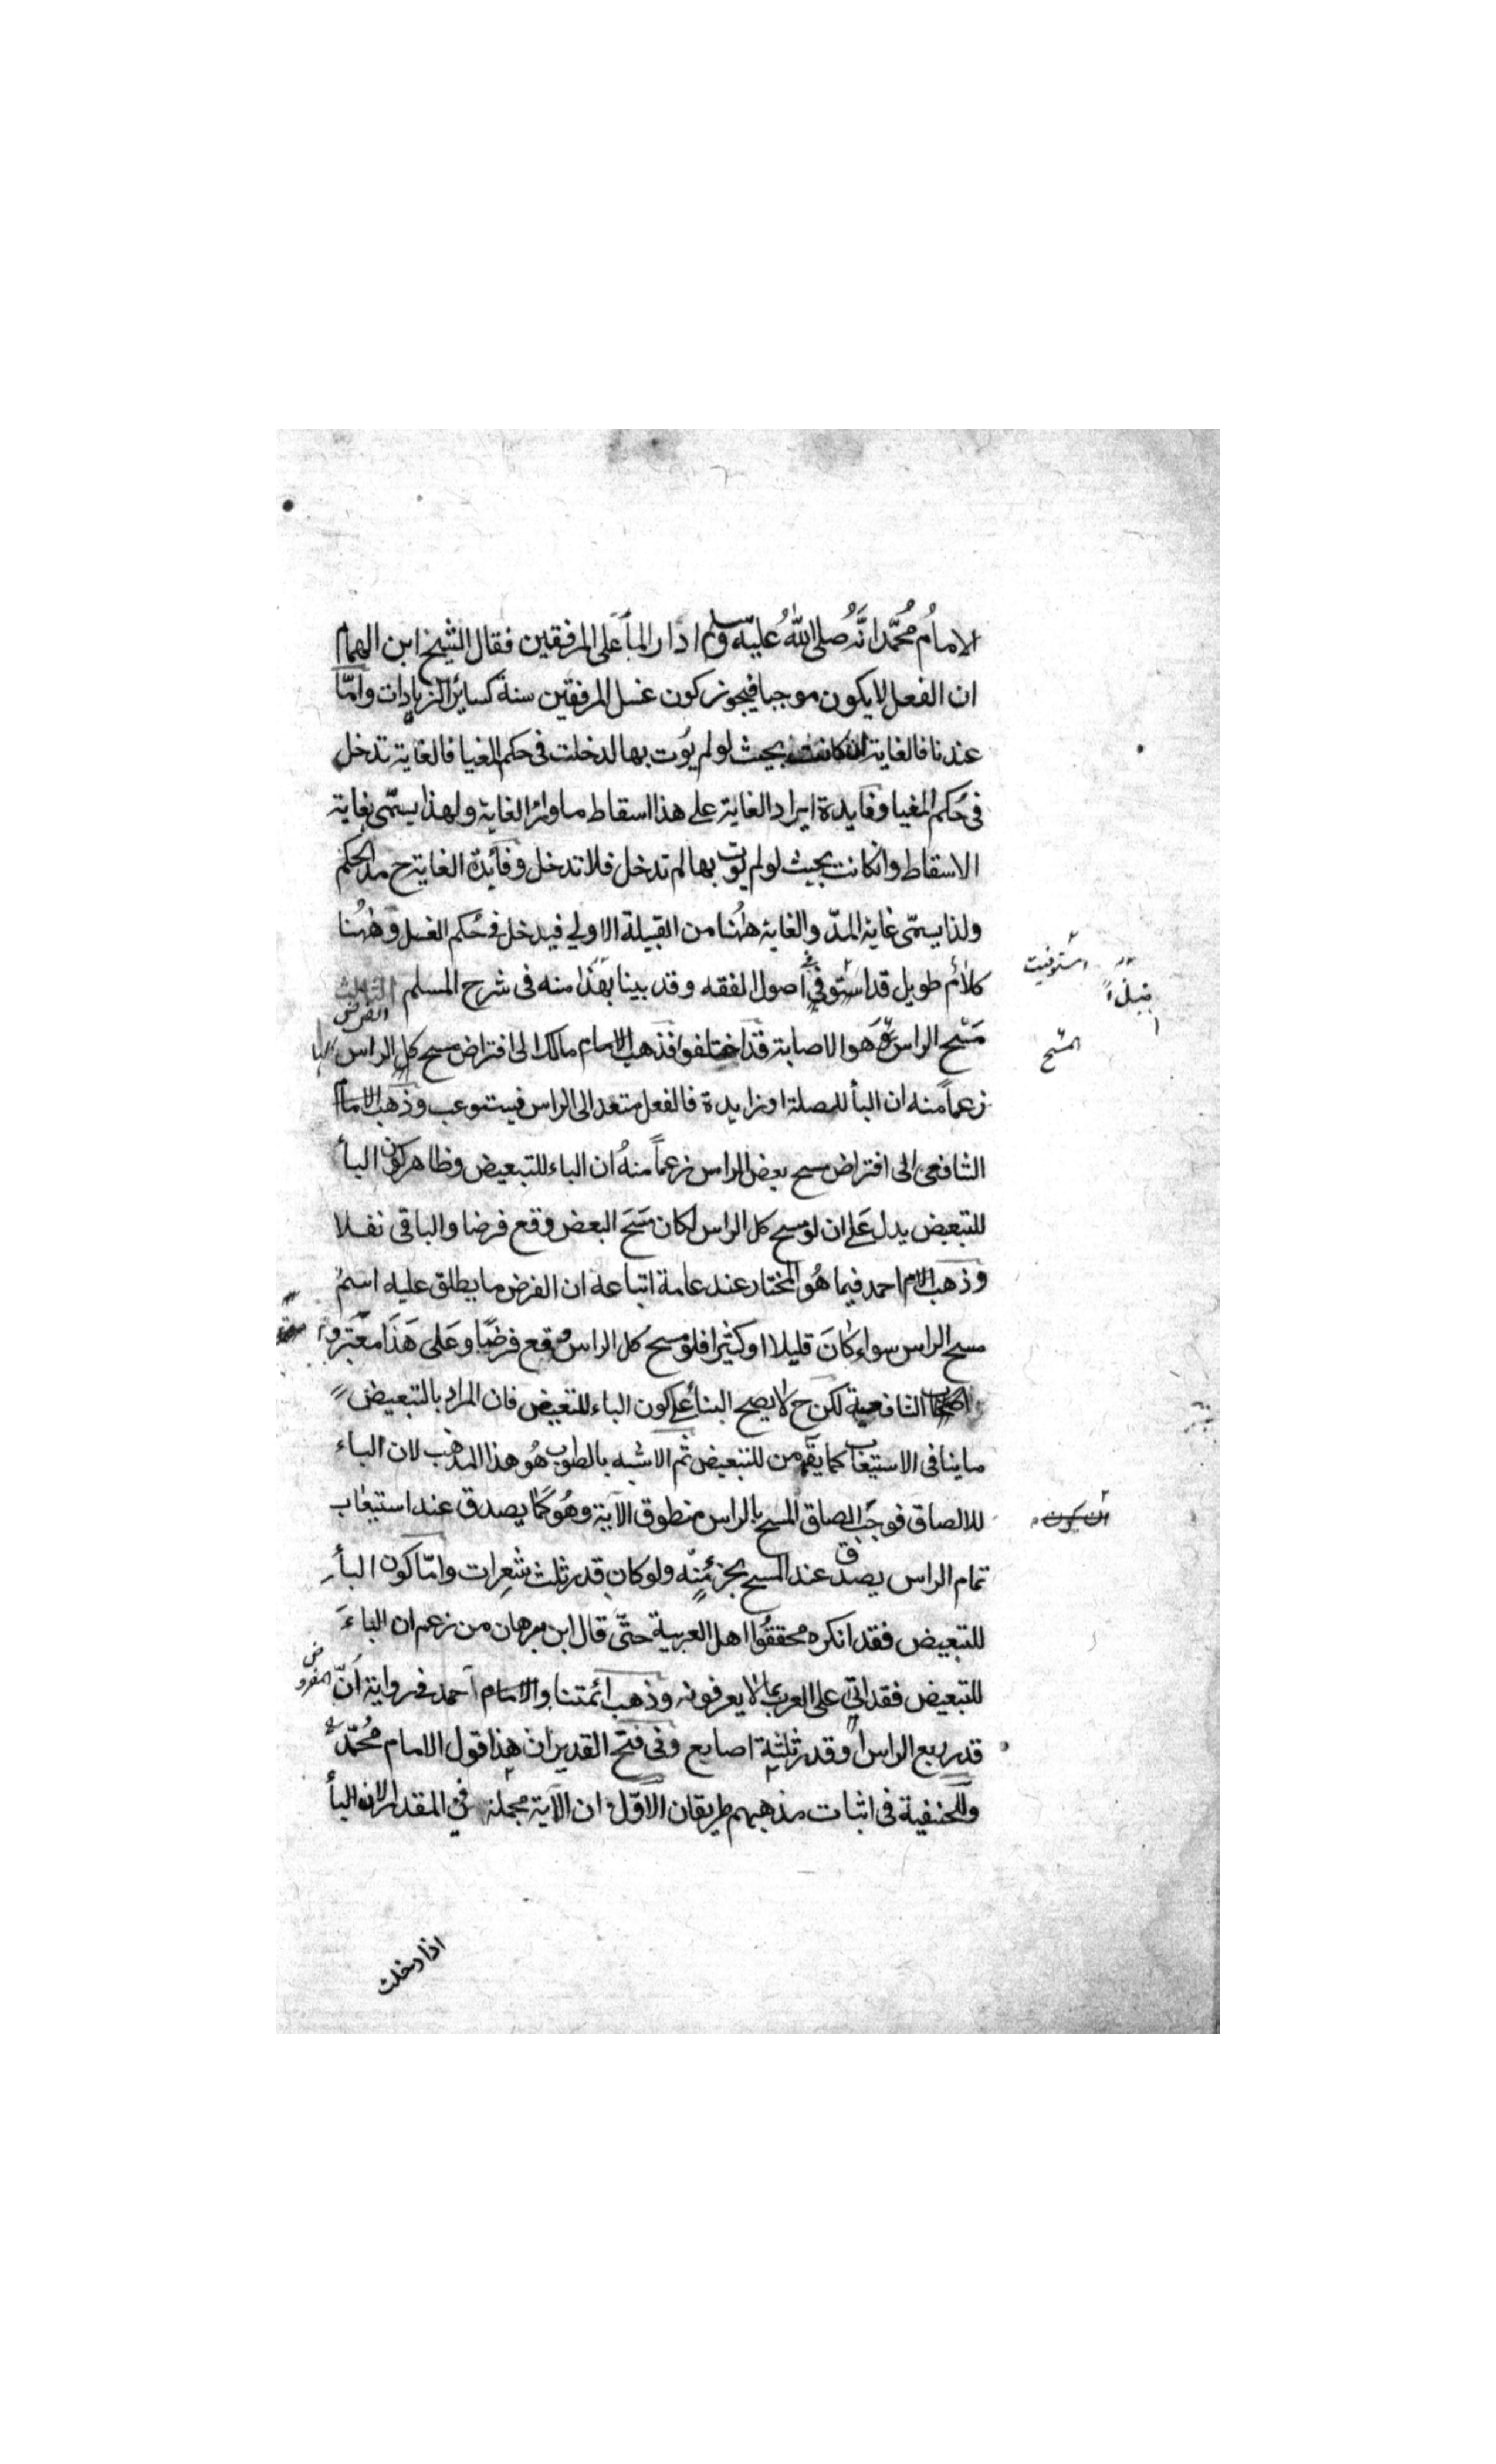 الامامُ محُمَّد انَّهُ صلى اللهُ عليه وسلم ادار المأَ على المرفقين فقال الشيخ ابن الهمام
ان الفعل لا يكون موجبا فيجوز كون غسل المرفقين سنة كسائر الزيادات وامّا
عندنا فالغاية انكانت بحيث لو لم يوت بها لدخلت فى حكم المغيا فالغاية تدخل
فى حكم المغيا وفايدة ايراد الغاية على هذا اسقاط ماوراء الغاية ولهذا يسمّى بغاية
الاسقاط وانكانت بحيث لو لم يوت بها لم تدخل فلا تدخل وفائدة الغاية ح مد الحكم
ولذا يسمّى غاية المدّ والغاية ههُنا من القبيلة الاولي فيدخل فى حُكم الغسل وههُنا
كلام طويل قد استوفى فى اصول الفقه وقد بينا نبذا منه فى شرح المسلم الثالث
استوفيت
نبذاً
الفرض
مَسْح الراس وَهو الاصابة قد اختلفوا فذهب الامام مالك الى افتراض مسح كل الراس
المسْح
زعماً منه ان البأ للصلة او زايدة فالفعل متعد الى الراس فيستوعب وذهب الامام
الشافعى الى افتراض مسح بعض الراس زعماً منهُ ان الباء للتبعيض وظاهر كون البأ
للتبعيض يدل عَلى ان لو مسح كل الراس لكان مَسَحَ البعض وقع فرضا والباقى نفلا
وذهب الامام احمد فيما هُو المختار عند عامة اتباعه ان الفرض ما يطلق عليه اسمُ
مسح الراس سواء كانَ قليلا او كثيرا فلو مسح كل الراس وقع فرضًا وعَلى هَذَا معتبرو
اصحاب الشافعية لكن ح لا يصح البنأ على كون الباء للتبعيض فان المراد بالتبعيض
ماينافى الاستيعاب كما يقهم من للتبعيض ثم الاشبه بالصواب هُو هذا المذهب لان الباء
للالصاق فوجَب الصاق المسح بالراس منطوق الآية وهُو كما يصدق عند استيعاب
تمام الراس يصدق عند المسح بجزء منه ولو كان قدر ثلث شعرات وامّا كون البأ
للتبعيض فقد انكره محققُوا اهل العربية حتّى قال ابن برهان من زعم ان الباءَ
للتبعيض فقد اتى على العرب بما لا يعرفونه وذهب ائمتنا والامام احمد فى رواية اَنّ
المفروض
قدر ربع الراس او قدر ثلثة اصابع وفى فتح القدير ان هذا قول الامام محُمّد
وللحنفية فى اثبات مذهبهم طريقان الاوّل ان الآية مجملة فى المقدار لان البأ
اذا دخلت